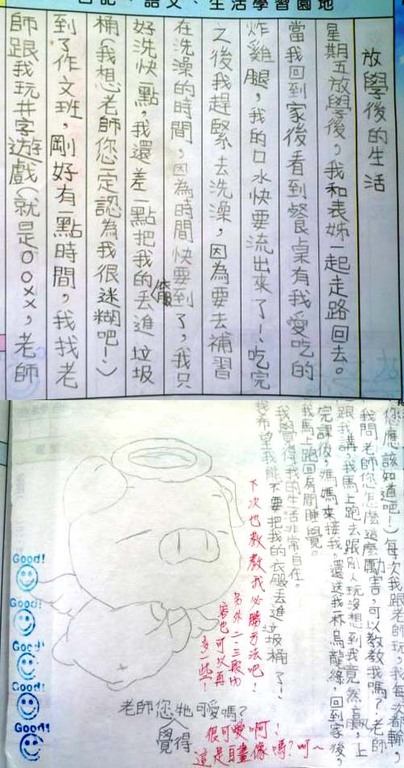 日記、語文、生活學習園地
放學後的生活
星期五放學後，我和表姊一起走路回去。
當我回到家後看到餐桌有我愛吃的
炸雞腿，我的口水快要流出來了！吃完
之後我趕緊去洗澡，因為要去補習
在洗澡的時間，因為時間快要到了，我只
好洗快一點，我還差一點把我的衣服丟進垃圾
桶（我想老師您一定認為我很迷糊吧！）
到了作文班，剛好有一點時間，我找老
師跟我玩井字遊戲（就是OOXX，老師
您應該知道吧！）每次我跟老師玩，我每次都輸，
我問老師您怎麼這麼厲害，可以教教我嗎？老師
跟我講，我馬上跑去跟別人玩沒想到我竟然贏，上
完課後，媽媽來接我，還送我杯烏龍綠，回到家後，
我馬上回房間睡覺。
我覺得我的生活非常自在。
我希望我能不要把我的衣服丟進垃圾桶了！
下次也教教我必勝方法吧！
另外二、三段內
容也可以再
多一些！
Good!
Good!
Good!
Good!
Good!
老師您覺得牠可愛嗎？
很可愛啊！
這是自畫像嗎？呵～